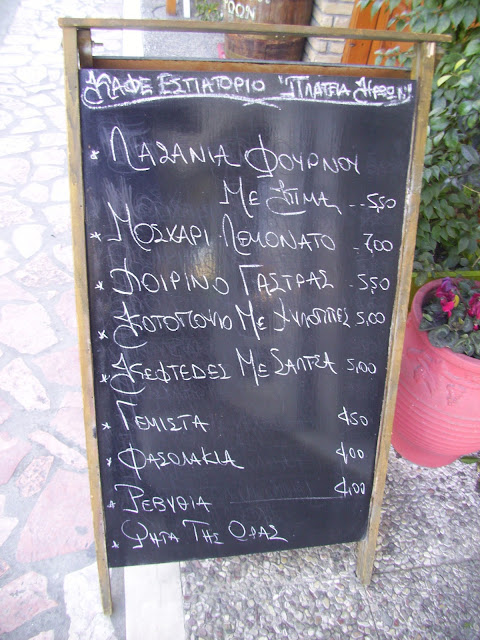 ΚΑΦΕ ΕΣΤΙΑΤΟΡΙΟ "ΠΛΑΤΕΙΑ ΗΡΩΩΝ"
* ΛΑΖΑΝΙΑ ΦΟΥΡΝΟΥ
ΜΕ ΚΙΜΑ .. 5,50
* ΜΟΣΧΑΡΙ ΛΕΜΟΝΑΤΟ . 7,00
* ΧΟΙΡΙΝΟ ΓΑΣΤΡΑΣ . 5,50
* ΚΟΤΟΠΟΥΛΟ ΜΕ ΧΥΛΟΠΙΤΕΣ 5,00
* ΚΕΦΤΕΔΕΣ ΜΕ ΣΑΛΤΣΑ 5,00
* ΓΕΜΙΣΤΑ 4,50
* ΦΑΣΟΛΑΚΙΑ 4,00
* ΡΕΒΥΘΙΑ 4,00
* ΨΗΤΑ ΤΗΣ ΩΡΑΣ